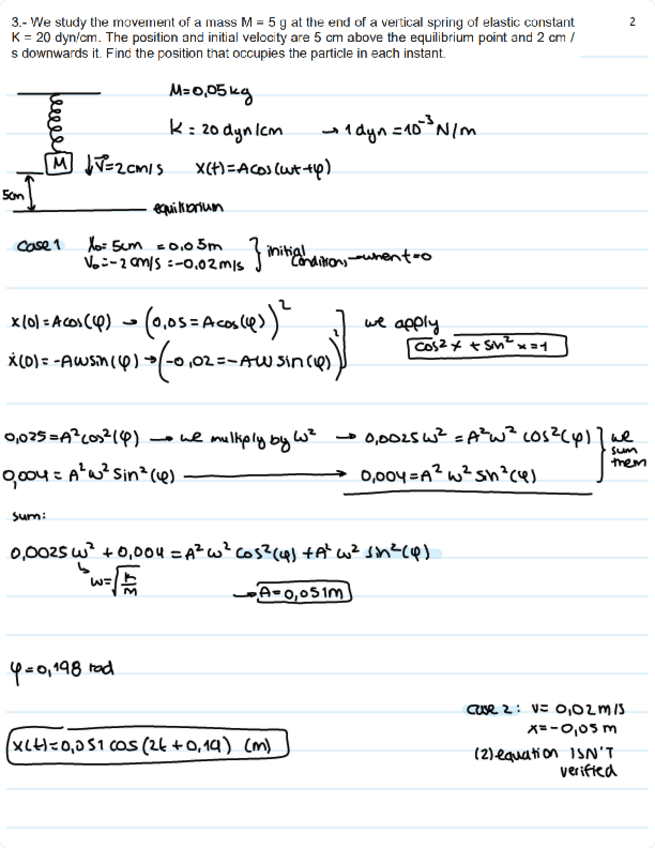 3.- We study the movement of a mass M = 5 g at the end of a vertical spring of elastic constant
2
K = 20 dyn/cm. The position and initial velocity are 5 cm above the equilibrium point and 2 cm /
s downwards it. Find the position that occupies the particle in each instant.
M=0,05kg
K = 20dyn/cm → 1dyn = 10⁻³ N/m
M ↓v⃗=2cm/s x(t)=Acos(ωt+φ)
5cm
equilibrium
Case 1 X₀= 5cm = 0,05m
V₀=-2cm/s =-0,02m/s } initial conditions → when t=0
x(0)=Acos(φ) → (0,05=Acos(φ))² we apply
ẋ(0)=-Aωsin(φ) → (-0,02=-Aωsin(φ))² cos²x + sin²x=1
0,025=A²cos²(φ) → we multiply by ω² → 0,0025ω² = A²ω² cos²(φ) } we sum them
0,004= A²ω² sin²(φ) → 0,004=A²ω² sin²(φ)
sum:
0,0025ω² + 0,004 = A²ω² cos²(φ) + A² ω² sin²(φ)
ω=√k/M → A=0,051m
φ=0,198 rad
case 2: v= 0,02m/s
x=-0,05m
x(t)=0,051 cos(2t+0,19) (m)
(2) equation ISN'T
verified